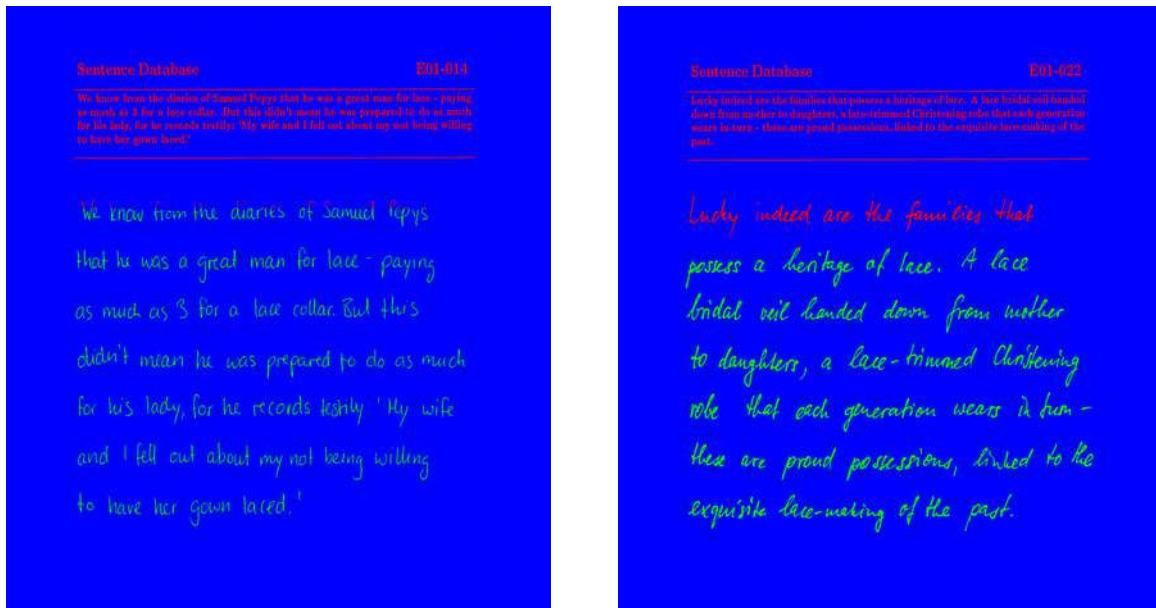 Sentence Database
E01-014
We know from the diaries of Samuel Pepys that he was a great man for lace - paying
as much as 3 for a lace collar. But this didn't mean he was prepared to do as much
for his lady, for he records testily: 'My wife and I fell out about my not being willing
to have her gown laced.'
We know from the diaries of Samuel Pepys
that he was a great man for lace - paying
as much as 3 for a lace collar. But this
didn't mean he was prepared to do as much
for his lady, for he records testily 'My wife
and I fell out about my not being willing
to have her gown laced.'
Sentence Database
E01-022
Lucky indeed are the families that possess a heritage of lace. A lace bridal veil handed
down from mother to daughters, a lace-trimmed Christening robe that each generation
wears in turn - these are proud possessions, linked to the exquisite lace-making of the
past.
Lucky indeed are the families that
possess a heritage of lace. A lace
bridal veil handed down from mother
to daughters, a lace-trimmed Christening
robe that each generation wears in turn -
these are proud possessions, linked to the
exquisite lace-making of the past.